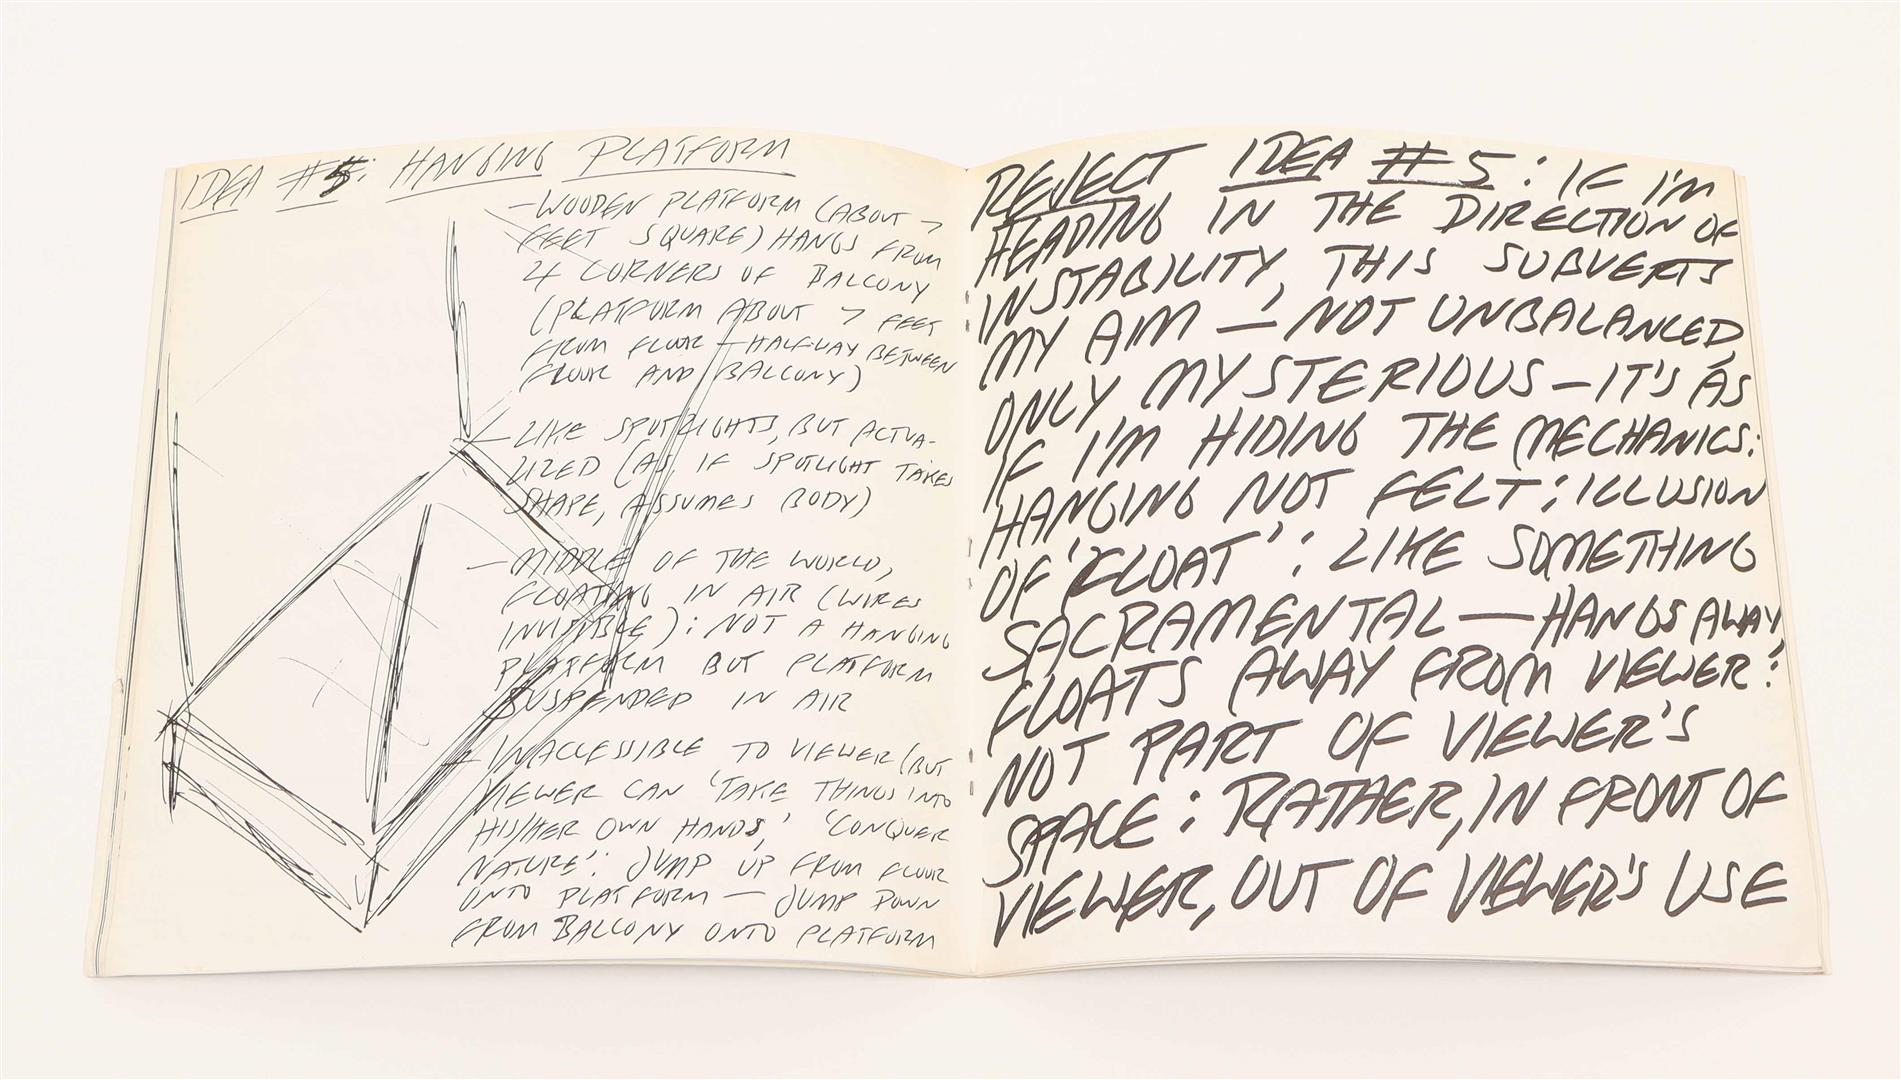 IDEA #5: HANGING PLATFORM
— WOODEN PLATFORM (ABOUT 7
FEET SQUARE) HANGS FROM
4 CORNERS OF BALCONY
(PLATFORM ABOUT 7 FEET
FROM FLOOR — HALFWAY BETWEEN
FLOOR AND BALCONY)
— LIKE SPOTLIGHTS, BUT ACTUA-
LIZED (AS IF SPOTLIGHT TAKES
SHAPE, ASSUMES BODY)
— MIDDLE OF THE WORLD,
FLOATING IN AIR (WIRES
INVISIBLE): NOT A HANGING
PLATFORM BUT PLATFORM
SUSPENDED IN AIR
— INACCESSIBLE TO VIEWER (BUT
VIEWER CAN 'TAKE THINGS INTO
HIS/HER OWN HANDS,' 'CONQUER
NATURE': JUMP UP FROM FLOOR
ONTO PLATFORM — JUMP DOWN
FROM BALCONY ONTO PLATFORM
REJECT IDEA #5: IF I'M
HEADING IN THE DIRECTION OF
INSTABILITY, THIS SUBVERTS
MY AIM — NOT UNBALANCED,
ONLY MYSTERIOUS — IT'S AS
IF I'M HIDING THE MECHANICS:
HANGING NOT FELT; ILLUSION
OF 'FLOAT': LIKE SOMETHING
SACRAMENTAL — HANGS AWAY,
FLOATS AWAY FROM VIEWER:
NOT PART OF VIEWER'S
SPACE: RATHER, IN FRONT OF
VIEWER, OUT OF VIEWER'S USE